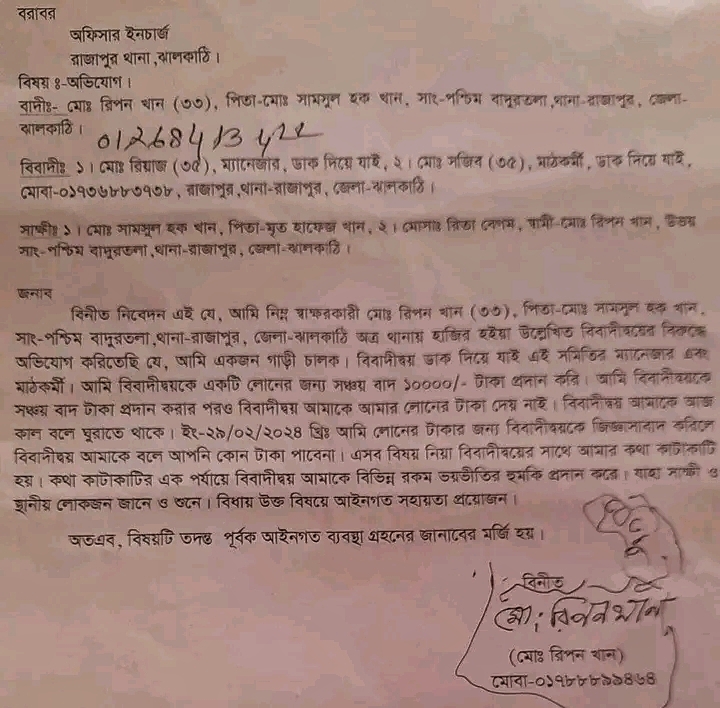 বরাবর
অফিসার ইনচার্জ
রাজাপুর থানা,ঝালকাঠি।
বিষয় ঃ-অভিযোগ।
বাদীঃ- মোঃ রিপন খান (৩৩), পিতা-মোঃ সামসুল হক খান, সাং-পশ্চিম বাদুরতলা,থানা-রাজাপুর, জেলা-
ঝালকাঠি।
বিবাদীঃ ১। মোঃ রিয়াজ (৩৫), ম্যানেজার, ডাক দিয়ে যাই, ২। মোঃ সজিব (৩৫), মাঠকর্মী, ডাক দিয়ে যাই,
মোবা-০১৭৩৬৮৮৩৭৩৮, রাজাপুর,থানা-রাজাপুর, জেলা-ঝালকাঠি।
সাক্ষীঃ ১। মোঃ সামসুল হক খান, পিতা-মৃত হাফেজ খান, ২। মোসাঃ রিতা বেগম, স্বামী-মোঃ রিপন খান, উভয়
সাং-পশ্চিম বাদুরতলা,থানা-রাজাপুর, জেলা-ঝালকাঠি।
জনাব
বিনীত নিবেদন এই যে, আমি নিম্ন স্বাক্ষরকারী মোঃ রিপন খান (৩৩), পিতা-মোঃ সামসুল হক খান,
সাং-পশ্চিম বাদুরতলা,থানা-রাজাপুর, জেলা-ঝালকাঠি অত্র থানায় হাজির হইয়া উল্লেখিত বিবাদীদ্বয়ের বিরুদ্ধে
অভিযোগ করিতেছি যে, আমি একজন গাড়ী চালক। বিবাদীদ্বয় ডাক দিয়ে যাই এই সমিতির ম্যানেজার এবং
মাঠকর্মী। আমি বিবাদীদ্বয়কে একটি লোনের জন্য সঞ্চয় বাদ ১০০০০/- টাকা প্রদান করি। আমি বিবাদীদ্বয়কে
সঞ্চয় বাদ টাকা প্রদান করার পরও বিবাদীদ্বয় আমাকে আমার লোনের টাকা দেয় নাই। বিবাদীদ্বয় আমাকে আজ
কাল বলে ঘুরাতে থাকে। ইং-২৯/০২/২০২৪ খ্রিঃ আমি লোনের টাকার জন্য বিবাদীদ্বয়কে জিজ্ঞাসাবাদ করিলে
বিবাদীদ্বয় আমাকে বলে আপনি কোন টাকা পাবেনা। এসব বিষয় নিয়া বিবাদীদ্বয়ের সাথে আমার কথা কাটাকাটি
হয়। কথা কাটাকাটির এক পর্যায়ে বিবাদীদ্বয় আমাকে বিভিন্ন রকম ভয়ভীতির হুমকি প্রদান করে। যাহা সাক্ষী ও
স্থানীয় লোকজন জানে ও শুনে। বিধায় উক্ত বিষয়ে আইনগত সহায়তা প্রয়োজন।
অতএব, বিষয়টি তদন্ত পূর্বক আইনগত ব্যবস্থা গ্রহনের জানাবের মর্জি হয়।
বিনীত
মোঃ রিপন খান
(মোঃ রিপন খান)
মোবা-০১৭৮৮৮৯৯৪৬৪